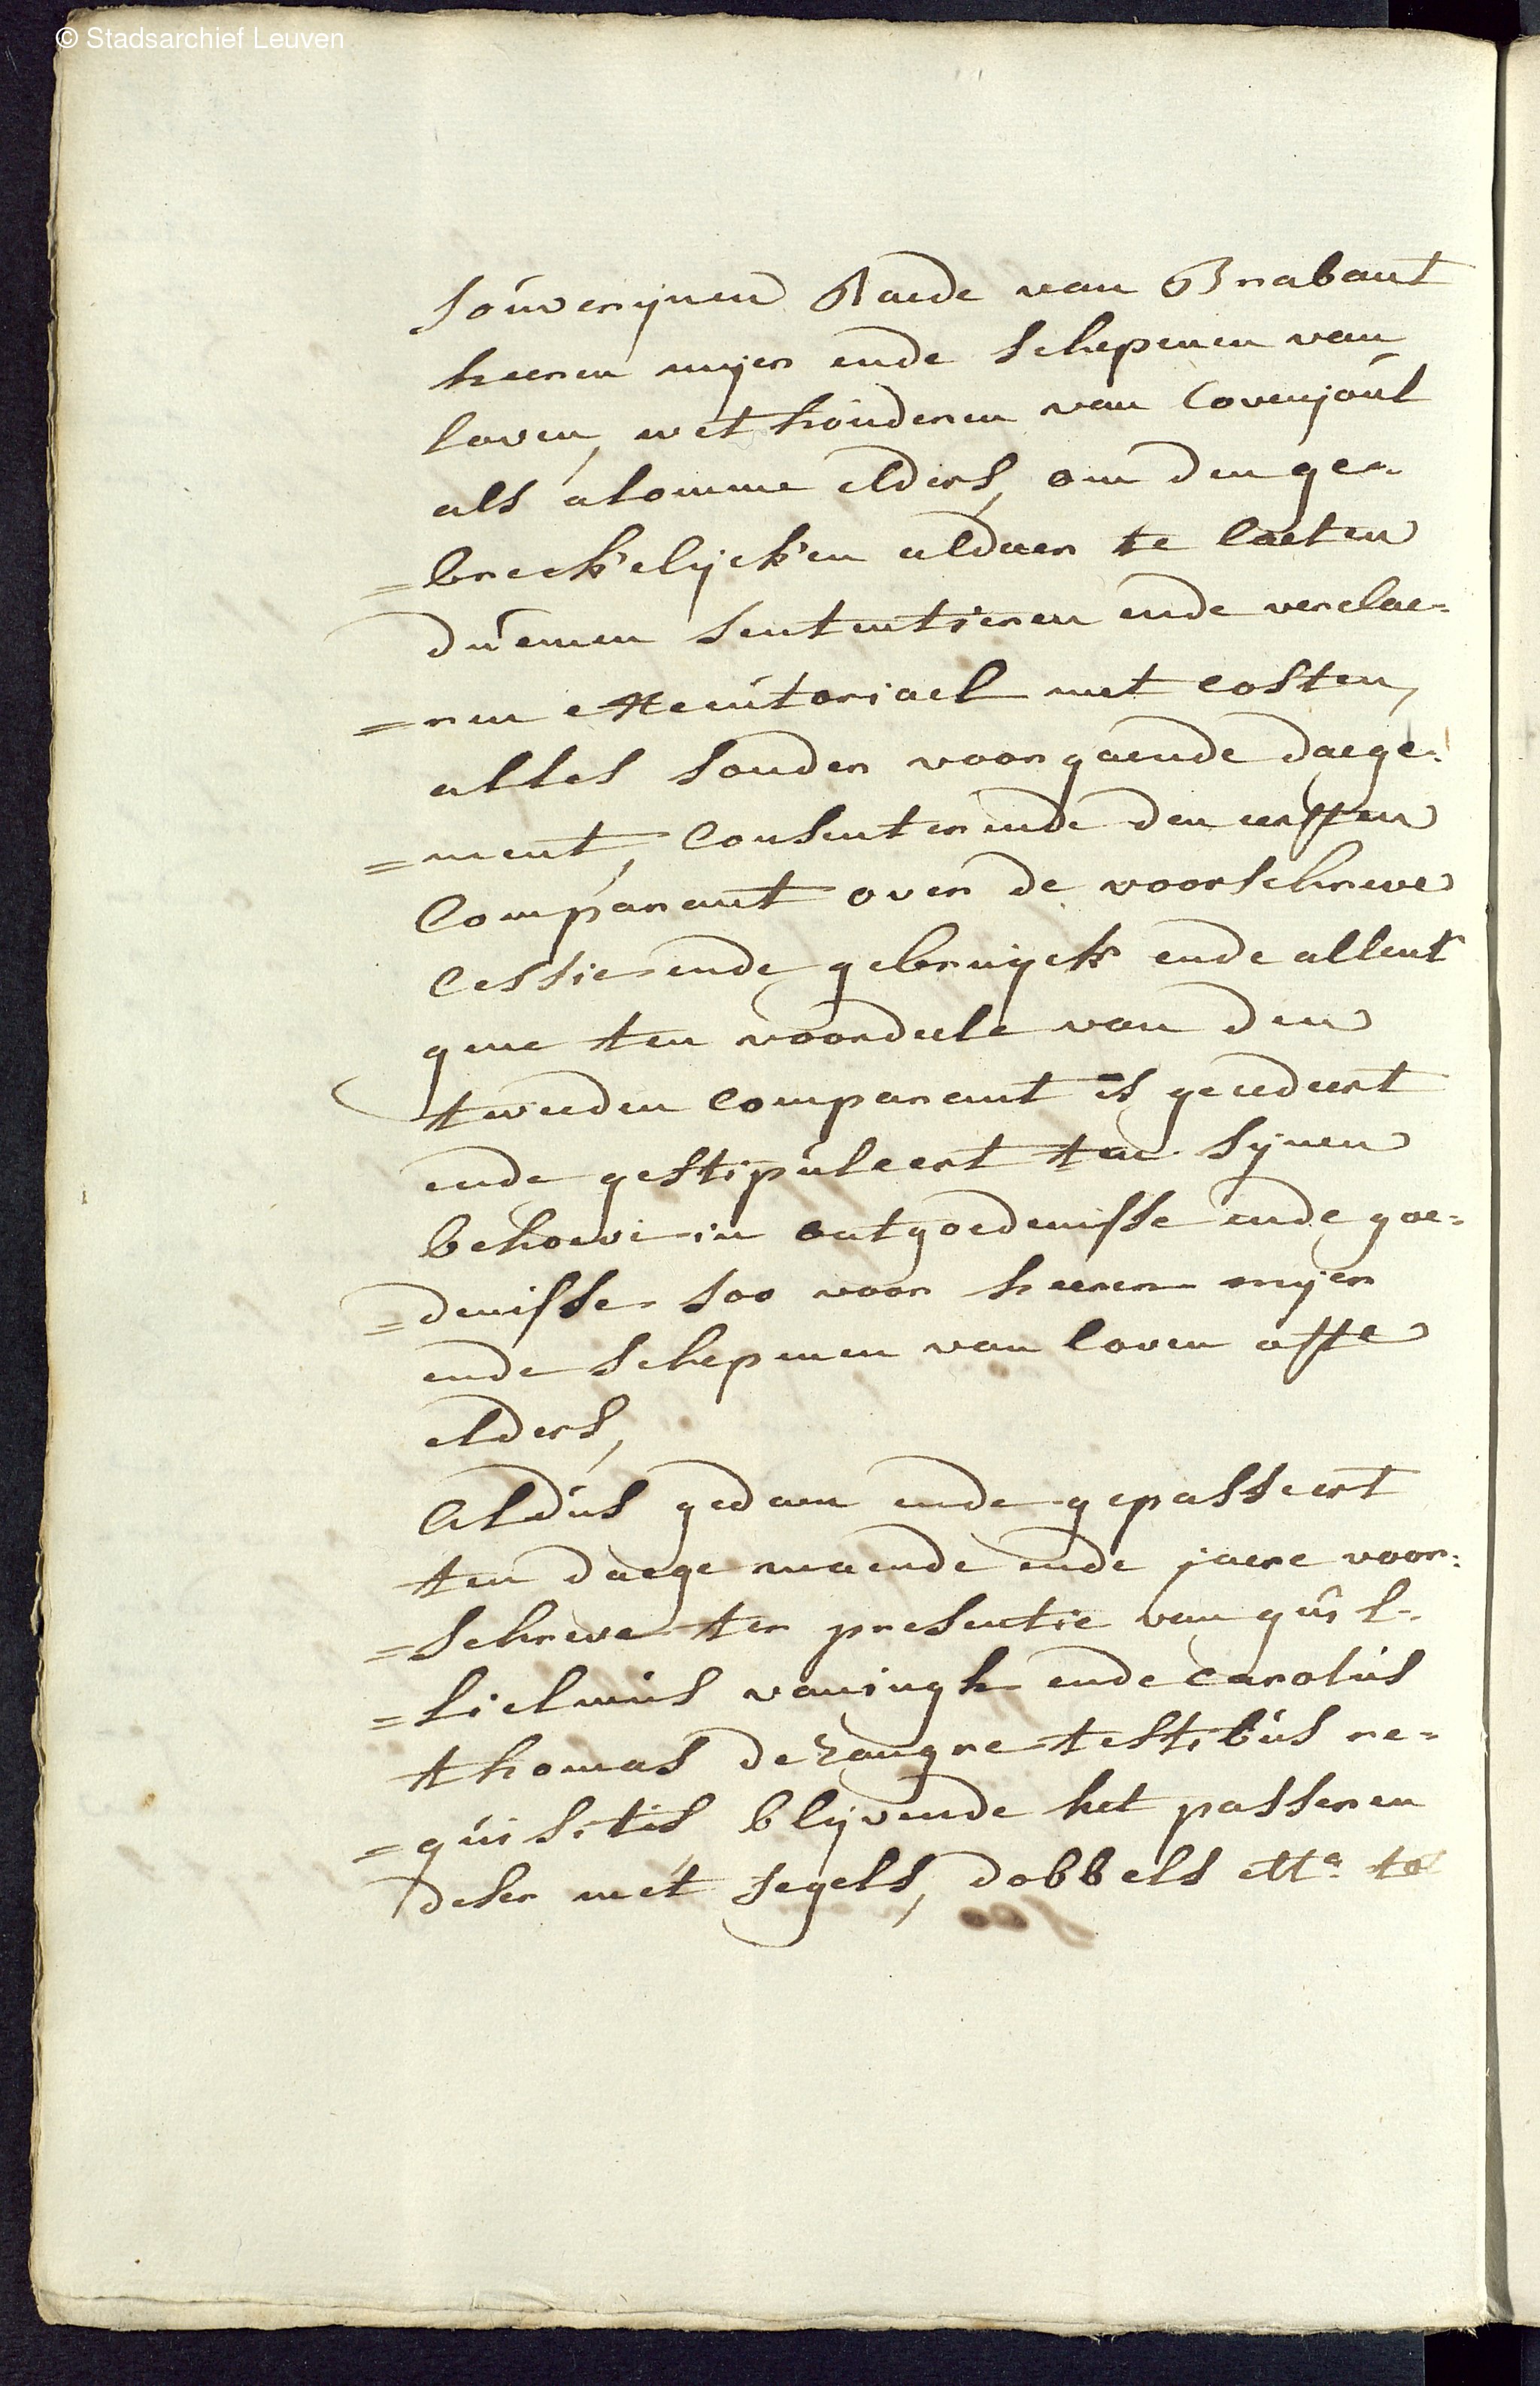 © Stadsarchief Leuven
souverijnen Raede van Brabant
heeren mijer ende schepenen van
loven, wethouderen van Corenjoul
als alomme elders, om den ge-
=breckelijcken aldaer te laeten
duemen sententieren ende verclae=
=ren executoriael met costen,
alles sonder voorgaende daege=
=ment, Consenterende den eersten
Comparant over de voorschreve
Cessie ende gebruijck ende allent
gene ten voordeele van den
tweeden Comparant is gecedeert
ende gestipuleert tot synen
behoeve in ontgoedenisse ende goe=
=denisse soo voor heeren mijer
ende schepenen van loven ofte
elders,
Aldus gedaen ende gepasseert
ten daege maende ende jaere voor=
=schreve ter presentie van guil=
=lielmus vaningh ende Carolus
thomas dezangre testibus re=
=quisitis blijvende het passeren
deser met segels, dobbels etta. tot